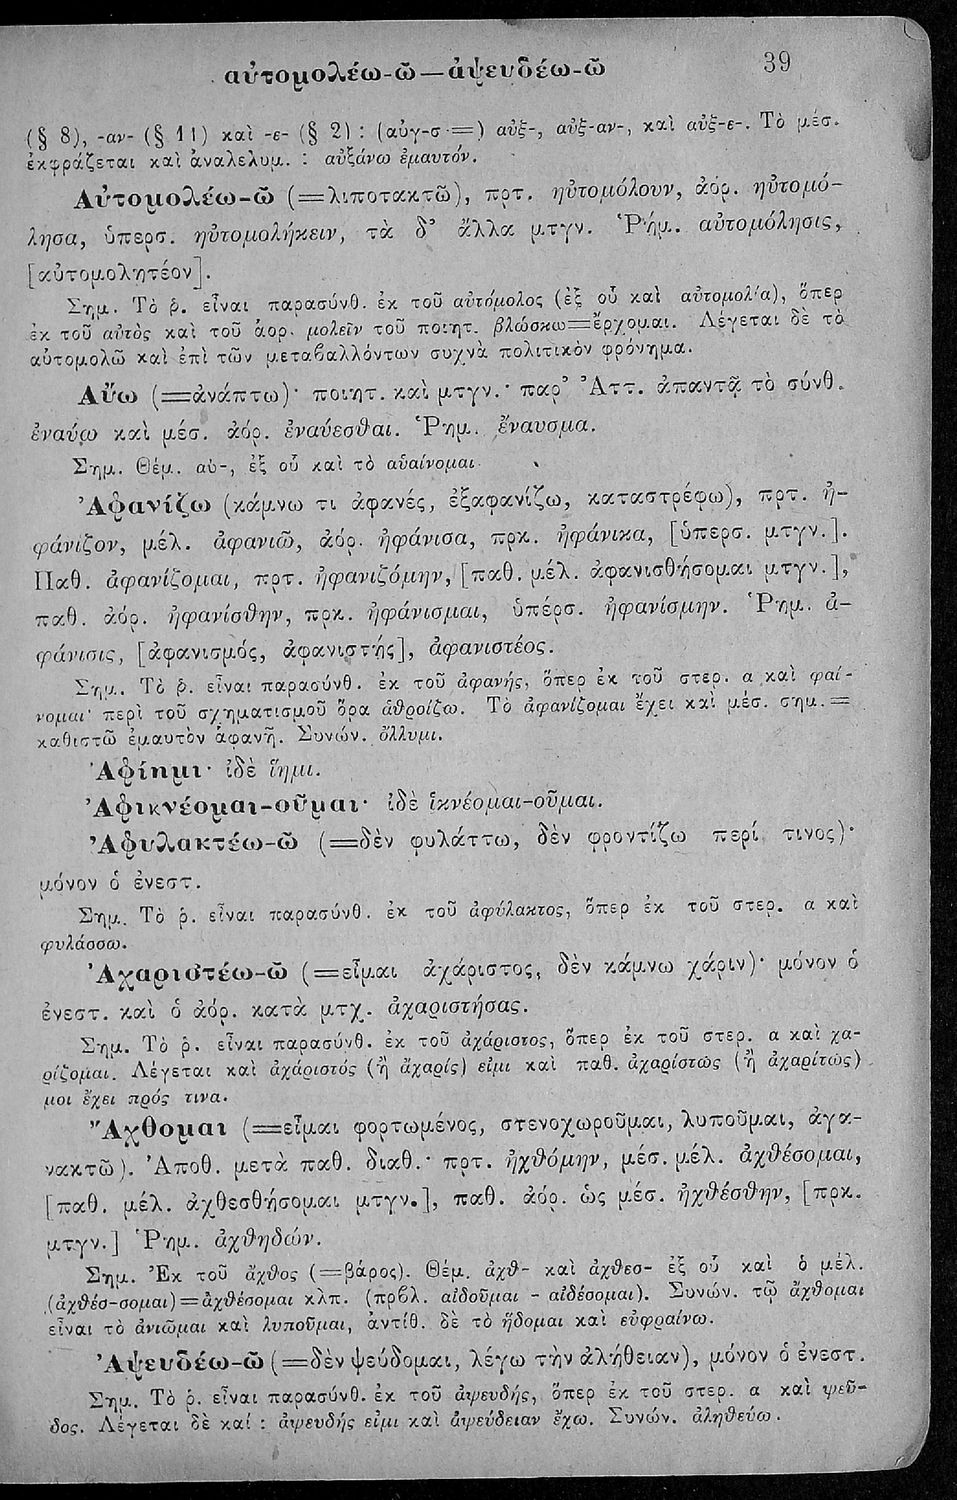 αὐτομολέω-ῶ — ἀψευδέω-ῶ 39
(§ 8), -αν- (§ 11) καὶ -ε- (§ 2) : (αὐγ-σ-=) αὐξ-, αὐξ-αν-, καὶ αὐξ-ε-. Τὸ μέσ.
ἐκφράζεται καὶ ἀναλελυμ. : αὐξάνω ἐμαυτόν.
Αὐτομολέω-ῶ (=λιποτακτῶ), πρτ. ηὐτομόλουν, ἀόρ. ηὐτομό-
λησα, ὑπερσ. ηὐτομολήκειν, τὰ δ’ ἄλλα μτγν. Ῥήμ. αὐτομόλησις,
[αὐτομολητέον].
Σημ. Τὸ ῥ. εἶναι παρασύνθ. ἐκ τοῦ αὐτόμολος (ἐξ οὗ καὶ αὐτομολία), ὅπερ
ἐκ τοῦ αὐτὸς καὶ τοῦ ἀορ. μολεῖν τοῦ ποιητ. βλώσκω=ἔρχομαι. Λέγεται δὲ τὸ
αὐτομολῶ καὶ ἐπὶ τῶν μεταβαλλόντων συχνὰ πολιτικὸν φρόνημα.
Αὔω (=ἀνάπτω)· ποιητ. καὶ μτγν.· παρ’ Ἀττ. ἀπαντᾷ τὸ σύνθ.
ἐναύω καὶ μέσ. ἀόρ. ἐναύεσθαι. Ῥημ. ἔναυσμα.
Σημ. Θέμ. αὐ-, ἐξ οὗ καὶ τὸ αὐαίνομαι.
Ἀφανίζω (κάμνω τι ἀφανές, ἐξαφανίζω, καταστρέφω), πρτ. ἠ-
φάνιζον, μέλ. ἀφανιῶ, ἀόρ. ἠφάνισα, πρκ. ἠφάνικα, [ὑπερσ. μτγν.].
Παθ. ἀφανίζομαι, πρτ. ἠφανιζόμην, [παθ. μέλ. ἀφανισθήσομαι μτγν.],
παθ. ἀόρ. ἠφανίσθην, πρκ. ἠφάνισμαι, ὑπέρσ. ἠφανίσμην. Ῥημ. ἀ-
φάνισις, [ἀφανισμός, ἀφανιστής], ἀφανιστέος.
Σημ. Τὸ ῥ. εἶναι παρασύνθ. ἐκ τοῦ ἀφανής, ὅπερ ἐκ τοῦ στερ. α καὶ φαί-
νομαι· περὶ τοῦ σχηματισμοῦ ὅρα ἀθροίζω. Τὸ ἀφανίζομαι ἔχει καὶ μέσ. σημ.=
καθιστῶ ἐμαυτὸν ἀφανῆ. Συνών. ὄλλυμι.
Ἀφίημι· ἰδὲ ἵημι.
Ἀφικνέομαι-οῦμαι· ἰδὲ ἱκνέομαι-οῦμαι.
Ἀφυλακτέω-ῶ (=δὲν φυλάττω, δὲν φροντίζω περί τινος)·
μόνον ὁ ἐνεστ.
Σημ. Τὸ ῥ. εἶναι παρασύνθ. ἐκ τοῦ ἀφύλακτος, ὅπερ ἐκ τοῦ στερ. α καὶ
φυλάσσω.
Ἀχαριστέω-ῶ (=εἶμαι ἀχάριστος, δὲν κάμνω χάριν)· μόνον ὁ
ἐνεστ. καὶ ὁ ἀόρ. κατὰ μτχ. ἀχαριστήσας.
Σημ. Τὸ ῥ. εἶναι παρασύνθ. ἐκ τοῦ ἀχάριστος, ὅπερ ἐκ τοῦ στερ. α καὶ χα-
ρίζομαι. Λέγεται καὶ ἀχάριστός (ἢ ἄχαρίς) εἰμι καὶ παθ. ἀχαρίστως (ἢ ἀχαρίτως)
μοι ἔχει πρός τινα.
Ἄχθομαι (=εἶμαι φορτωμένος, στενοχωροῦμαι, λυποῦμαι, ἀγα-
νακτῶ). Ἀποθ. μετὰ παθ. διαθ.· πρτ. ἠχθόμην, μέσ. μέλ. ἀχθέσομαι,
[παθ. μέλ. ἀχθεσθήσομαι μτγν.], παθ. ἀόρ. ὡς μέσ. ἠχθέσθην, [πρκ.
μτγν.] Ῥημ. ἀχθηδών.
Σημ. Ἐκ τοῦ ἄχθος (=βάρος). Θέμ. ἀχθ- καὶ ἀχθεσ- ἐξ οὗ καὶ ὁ μέλ.
(ἀχθέσ-σομαι)=ἀχθέσομαι κλπ. (πρβλ. αἰδοῦμαι - αἰδέσομαι). Συνών. τῷ ἄχθομαι
εἶναι τὸ ἀνιῶμαι καὶ λυποῦμαι, ἀντίθ. δὲ τὸ ἥδομαι καὶ εὐφραίνω.
Ἀψευδέω-ῶ (=δὲν ψεύδομαι, λέγω τὴν ἀλήθειαν), μόνον ὁ ἐνεστ.
Σημ. Τὸ ῥ. εἶναι παρασύνθ. ἐκ τοῦ ἀψευδής, ὅπερ ἐκ τοῦ στερ. α καὶ ψεῦ-
δος. Λέγεται δὲ καί : ἀψευδής εἰμι καὶ ἀψεύδειαν ἔχω. Συνών. ἀληθεύω.